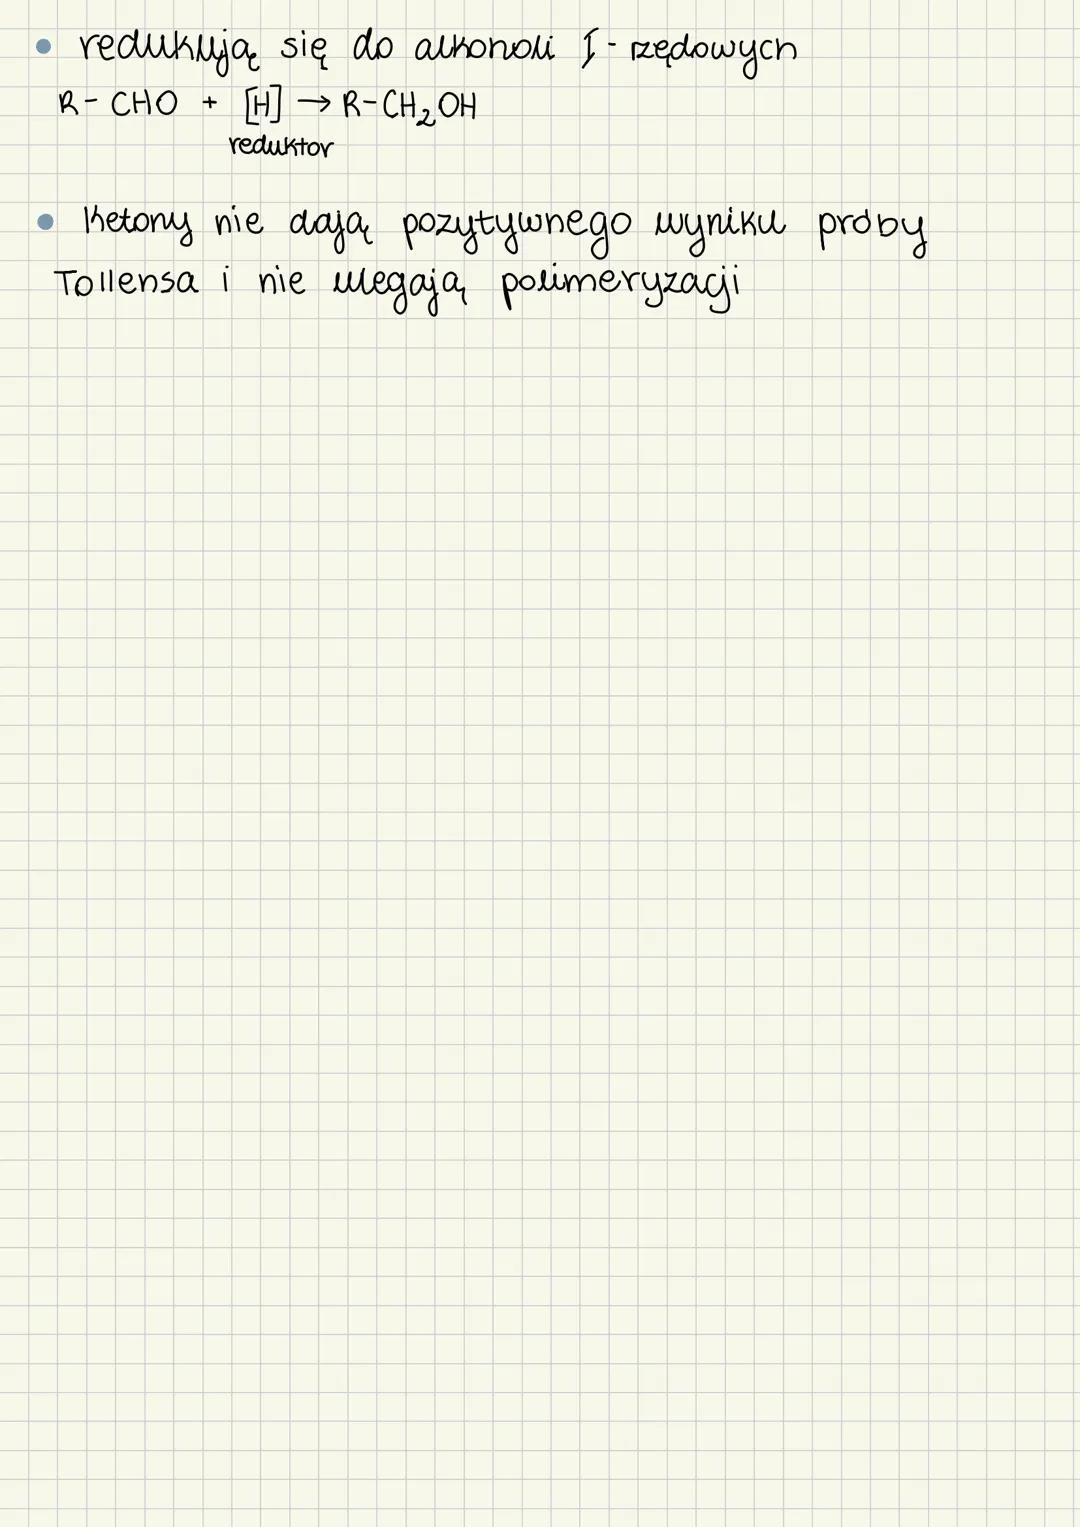 • redukują się do alkoholi I-rzędowych
R-CHO + [H] → R-CH₂OH
reduktor
• Ketony nie dają pozytywnego wyniku próby
Tollensa i nie ulegają polimeryzacji